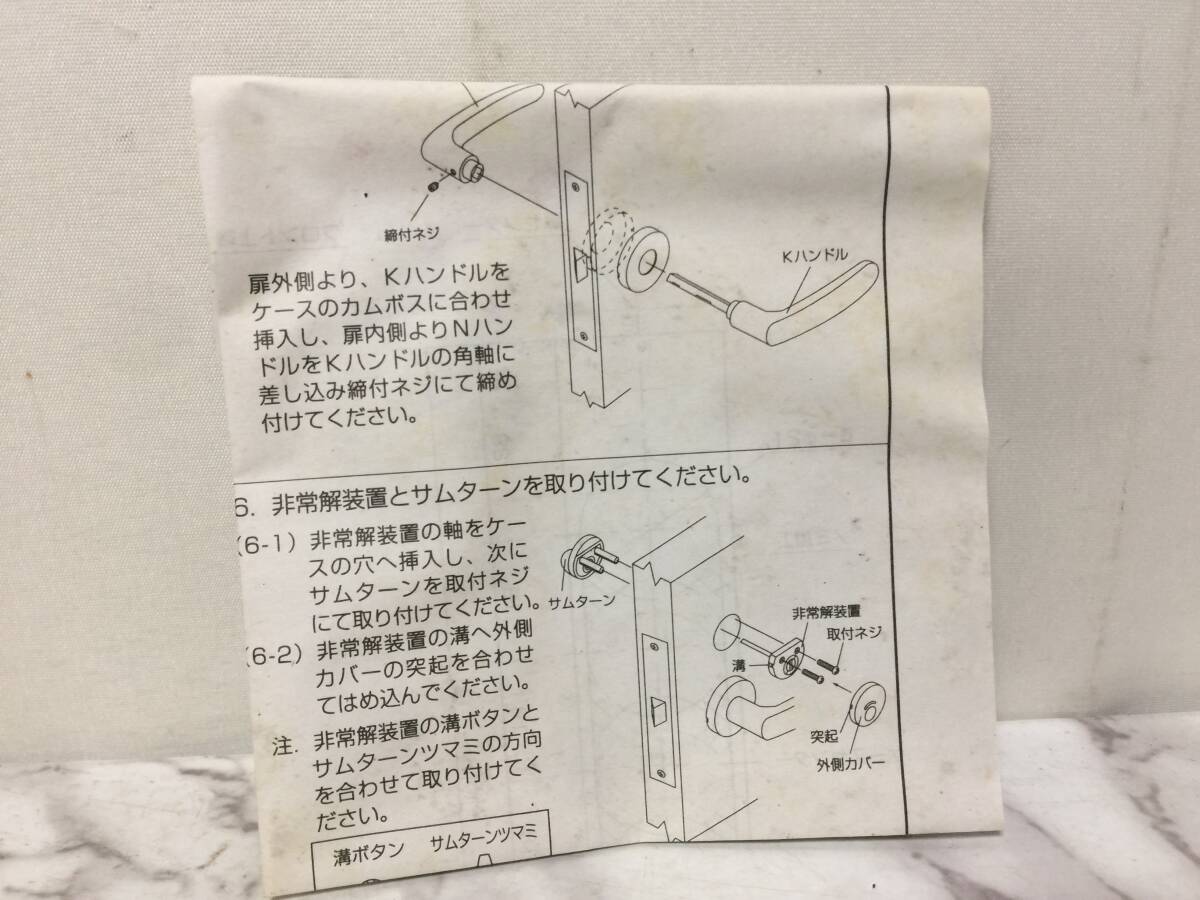 締付ネジ
Kハンドル
扉外側より、Kハンドルを
ケースのカムボスに合わせ
挿入し、扉内側よりNハン
ドルをKハンドルの角軸に
差し込み締付ネジにて締め
付けてください。
6. 非常解装置とサムターンを取り付けてください。
(6-1) 非常解装置の軸をケー
スの穴へ挿入し、次に
サムターンを取付ネジ
にて取り付けてください。
(6-2) 非常解装置の溝へ外側
カバーの突起を合わせ
てはめ込んでください。
注. 非常解装置の溝ボタンと
サムターンツマミの方向
を合わせて取り付けてく
ださい。
サムターン
非常解装置
取付ネジ
溝
突起
外側カバー
溝ボタン サムターンツマミ